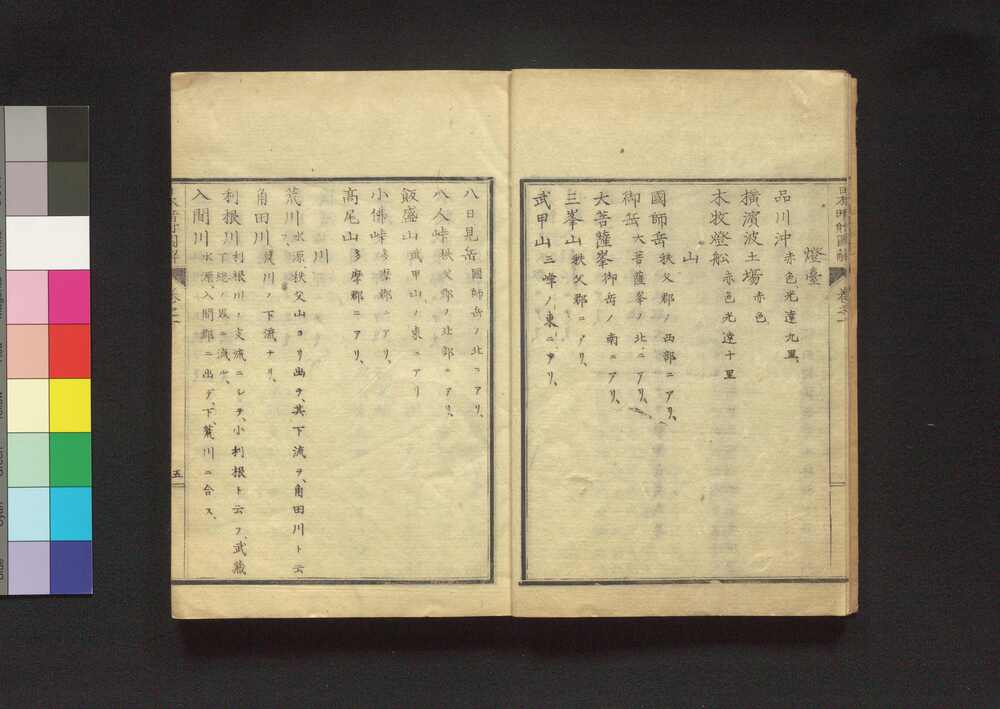 燈臺
品川沖 赤色光達九里、
橫濱波土場 赤色
本牧燈舩 赤色光達十里
山
國師岳 秩父郡ノ西部ニアリ、
御岳 大菩薩峯ノ北ニアリ、
大菩薩峯 御岳ノ南ニアリ、
三峯山 秩父郡ニアリ、
武甲山 三峰ノ東ニアリ、
八日見岳 國師岳ノ北ニアリ、
八人峠 秩父郡ノ北部ニアリ、
飯盛山 武甲山ノ東ニアリ
小佛峠 多摩郡ニアリ、
高尾山 多摩郡ニアリ、
川
荒川 水源秩父山ヨリ出テ、其下流ヲ、角田川ト云フ、
角田川 荒川ノ下流ナリ、
利根川 利根川ノ支流ニシテ、小利根ト云フ、武藏下總ノ界ニ流ル、
入間川 水源入間郡ニ出テ、下、荒川ニ合ス、
五